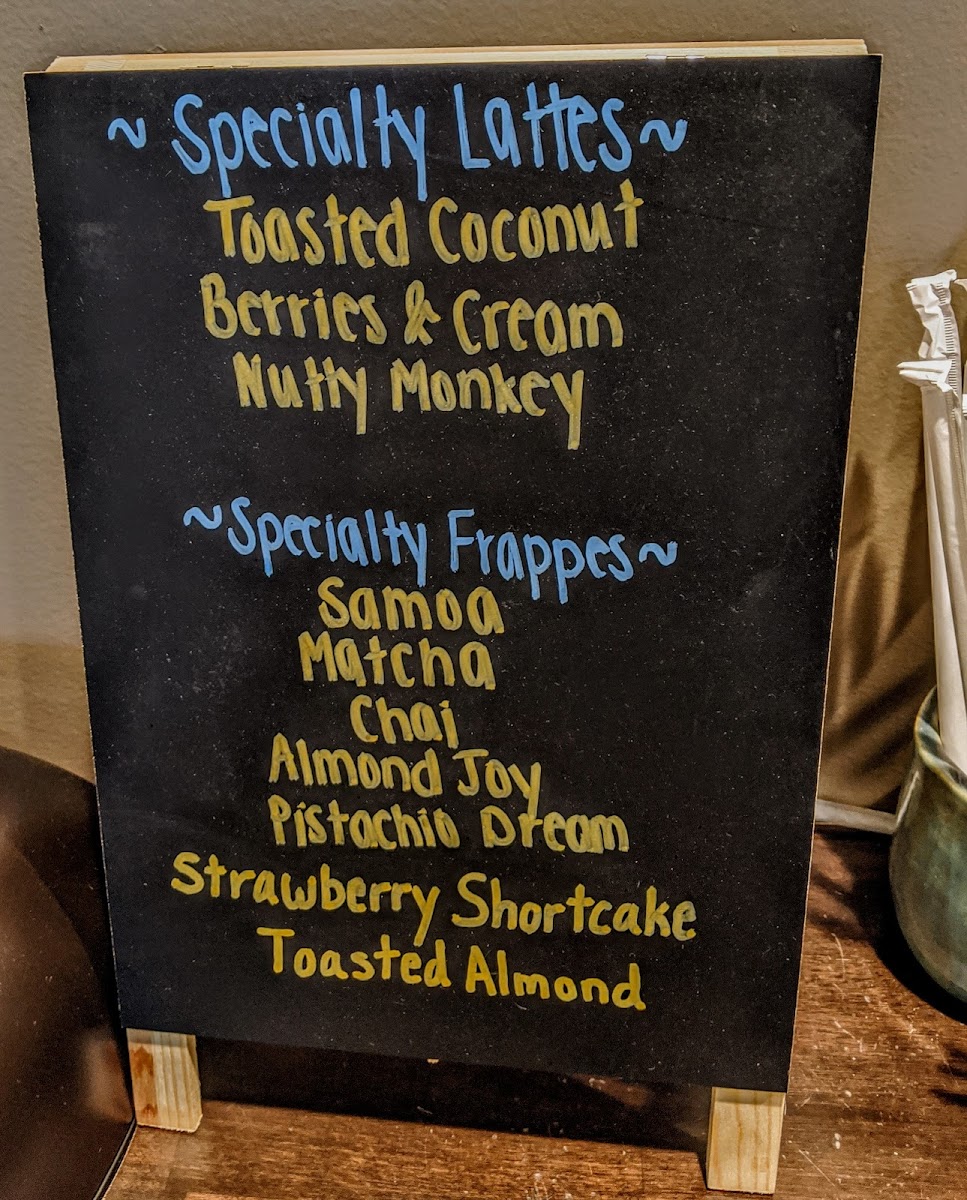 ~ Specialty Lattes ~
Toasted Coconut
Berries & Cream
Nutty Monkey
~ Specialty Frappes ~
Samoa
Matcha
Chai
Almond Joy
Pistachio Dream
Strawberry Shortcake
Toasted Almond